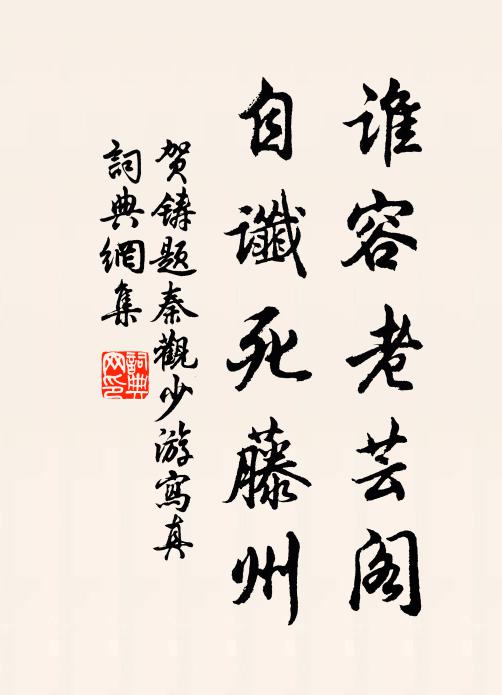 谁容老芸阁
自谶死藤州
贺铸题秦觀少游寫真
詞典網集
詞典網印